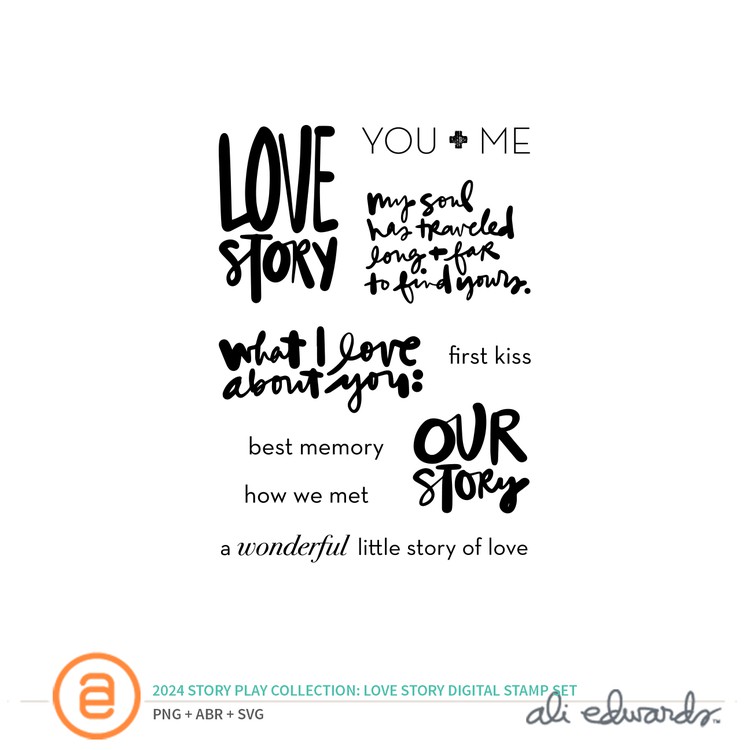 LOVE
STORY
YOU + ME
my soul
has traveled
long + far
to find yours.
what I love
about you:
first kiss
OUR
STORY
best memory
how we met
a wonderful little story of love
a
2024 STORY PLAY COLLECTION: LOVE STORY DIGITAL STAMP SET
PNG + ABR + SVG
ali edwards™